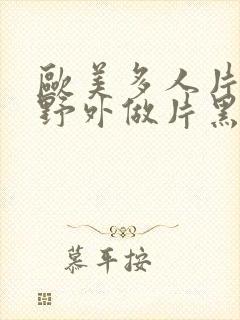 歐美多人片
野外做片黑
慕平按